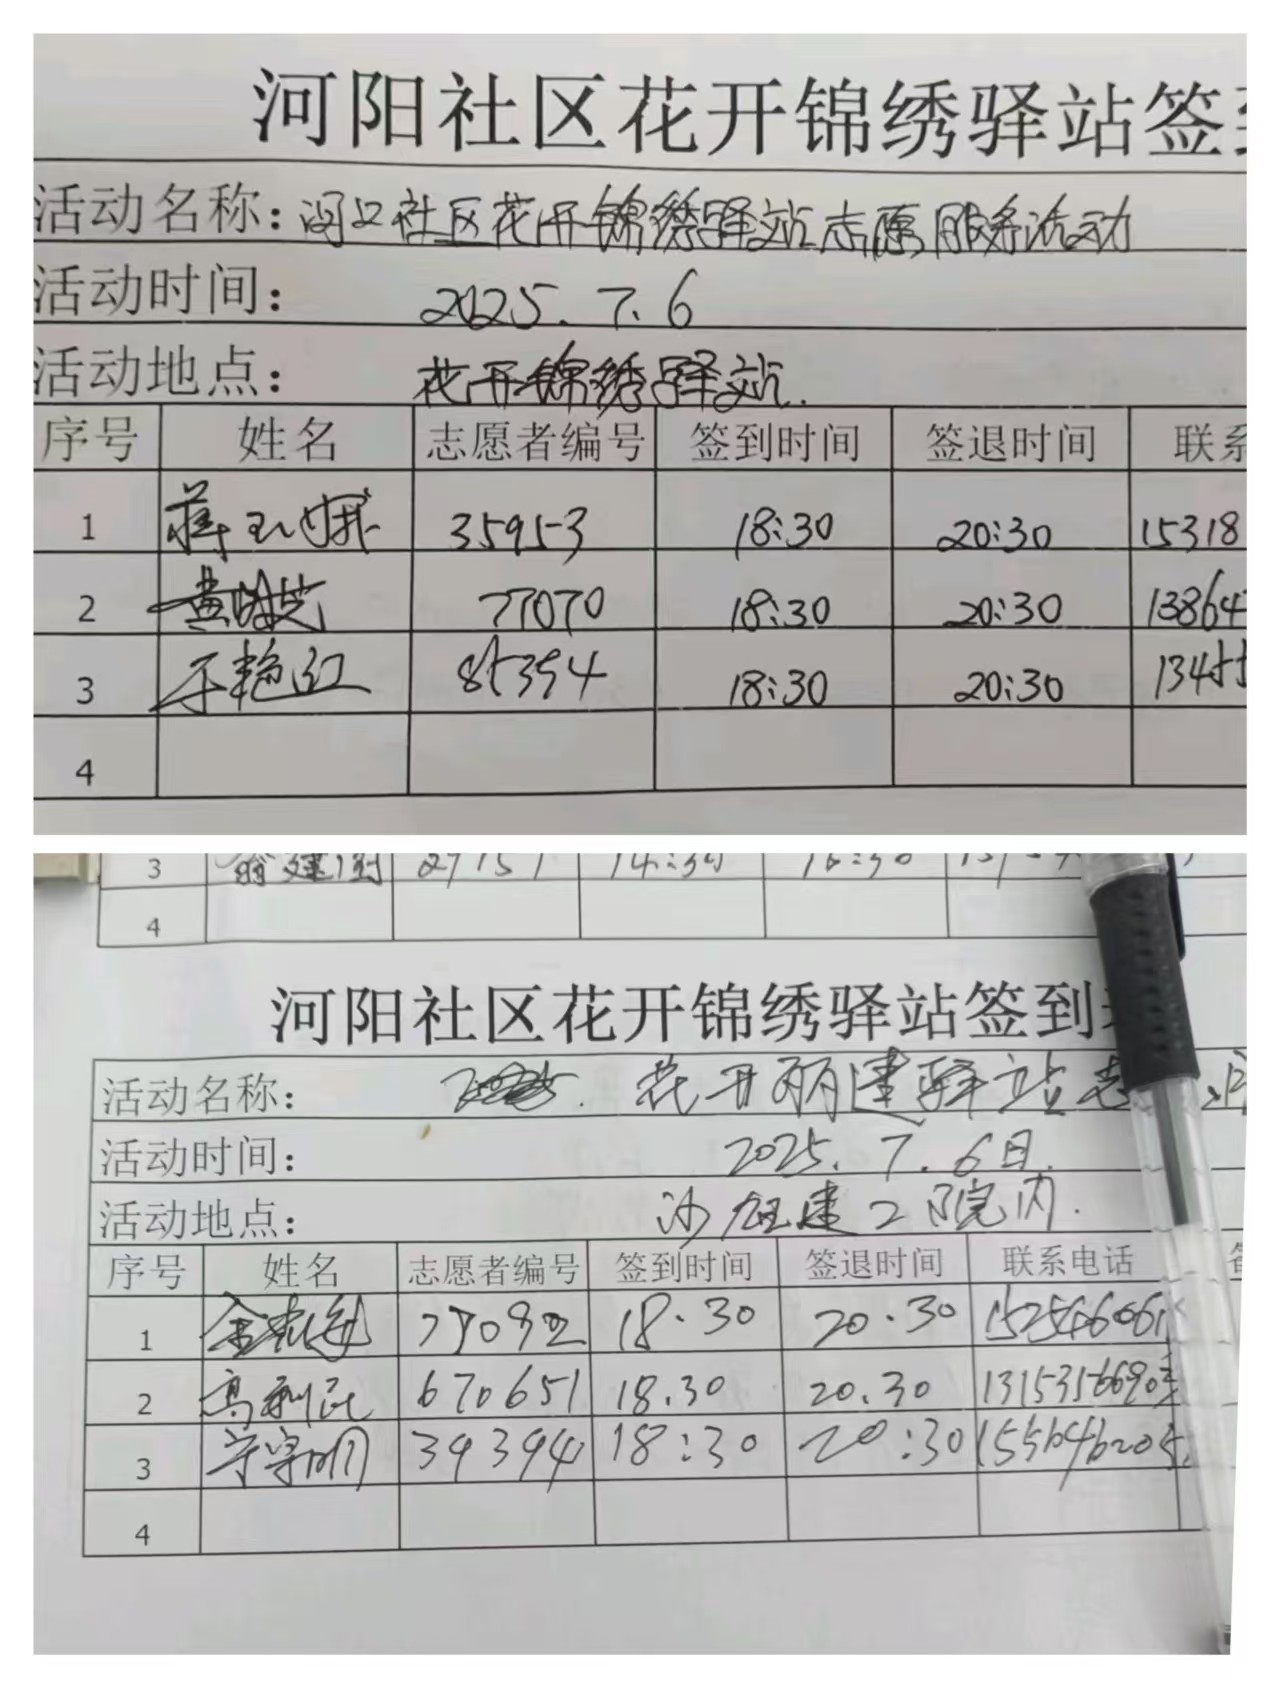 河阳社区花开锦绣驿站签到
活动名称：河口社区花开锦绣驿站志愿服务活动
活动时间： 2025.7.6
活动地点： 花开锦绣驿站.
序号 姓名 志愿者编号 签到时间 签退时间 联系
1 蒋玉娥 35953 18:30 20:30 15318
2 黄晓芝 77070 18:30 20:30 13864
3 于艳红 85394 18:30 20:30 13455
4
3 翁建 27151 14:30 16:30
4
河阳社区花开锦绣驿站签到
活动名称： 花开丽建驿站志
活动时间： 2025.7.6日.
活动地点： 沙建工院内.
序号 姓名 志愿者编号 签到时间 签退时间 联系电话
1 18.30 20.30
2 高利 670651 18.30 20.30
3 39394 18:30 20:30
4